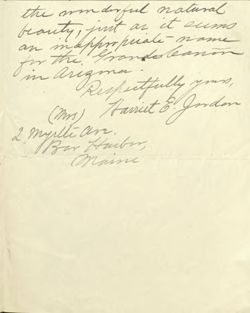 the wonderful natural
beauty, just as it seems
an inappropriate name
for the Grand Canon
in Arizona.
Respectfully yours,
(Mrs) Harriet E. Jordan
2 Myrtle Av.
Bar Harbor,
Maine